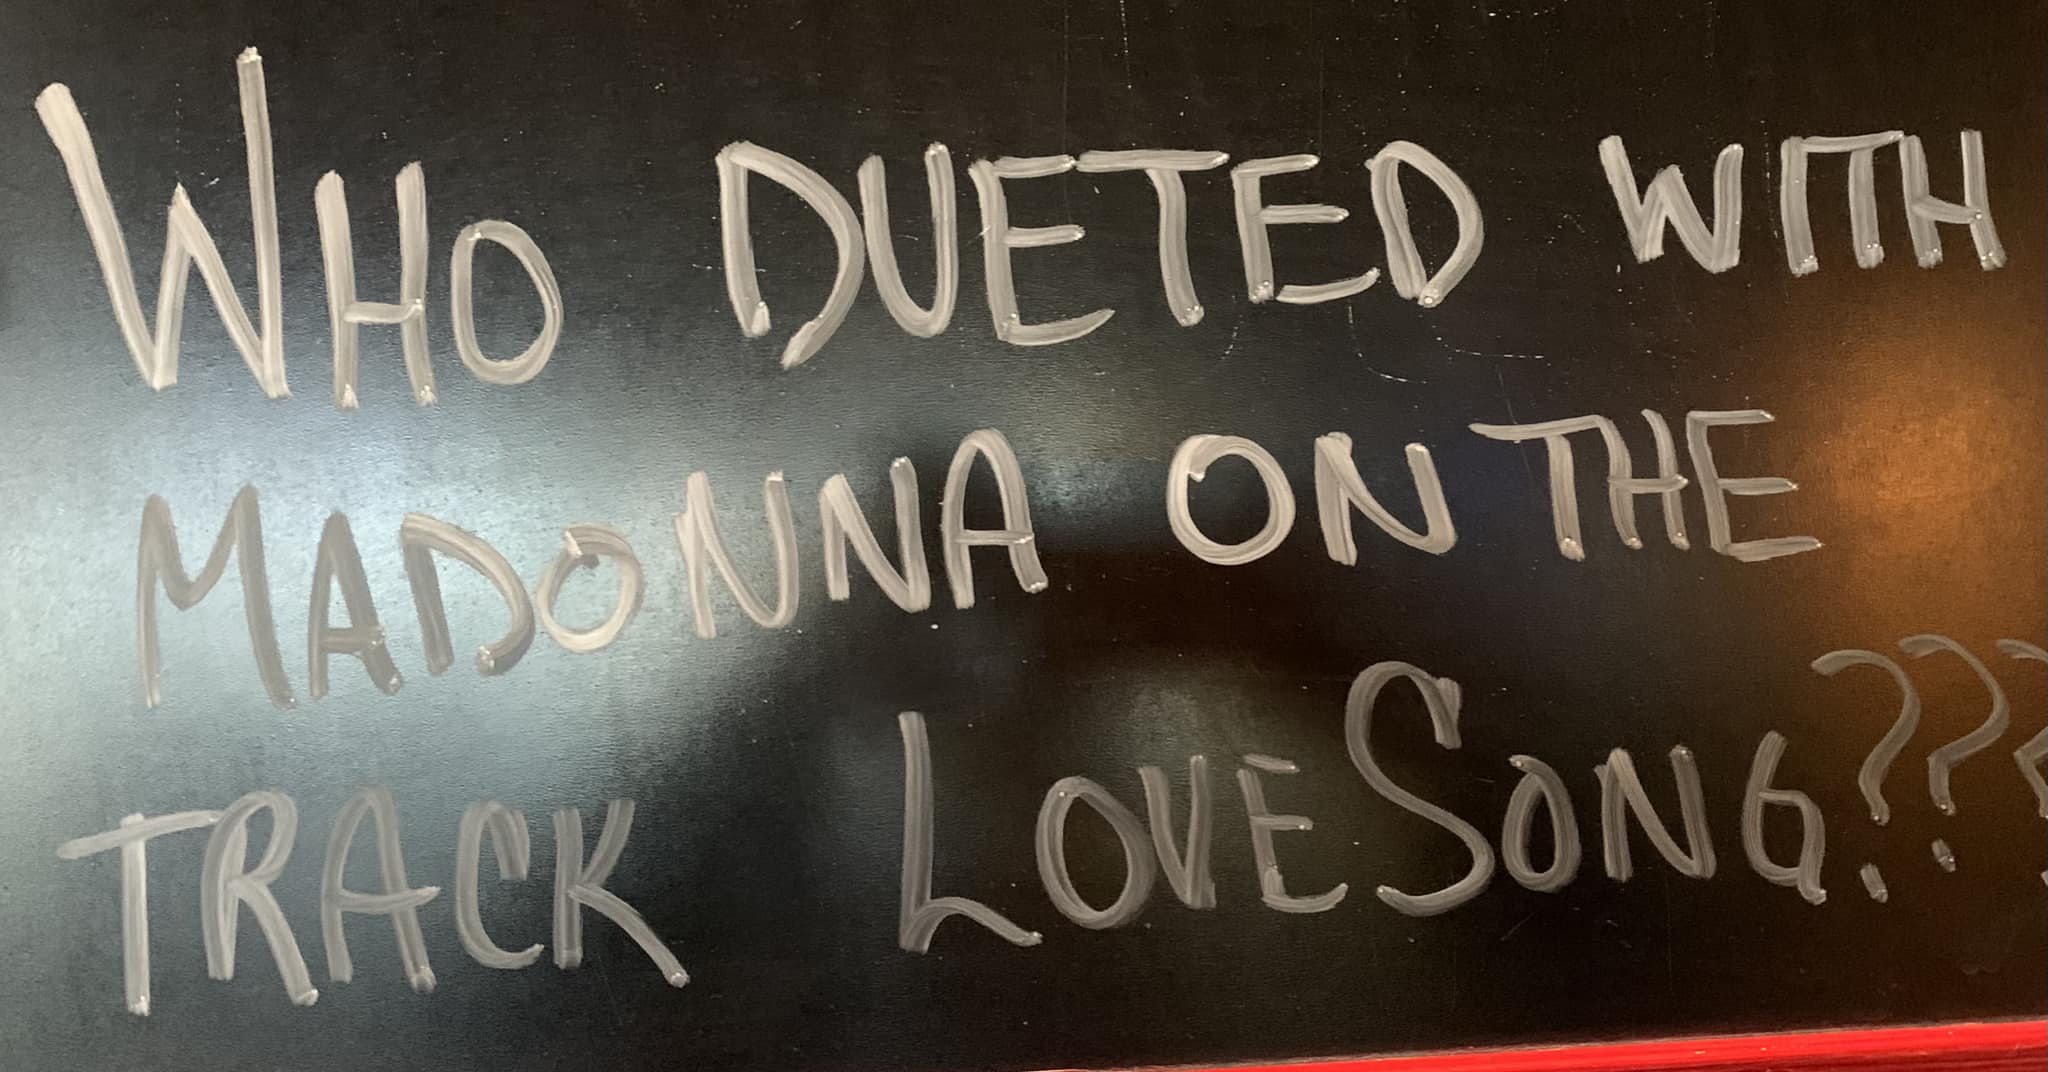 WHO DUETED WITH
MADONNA ON THE
TRACK LOVESONG???